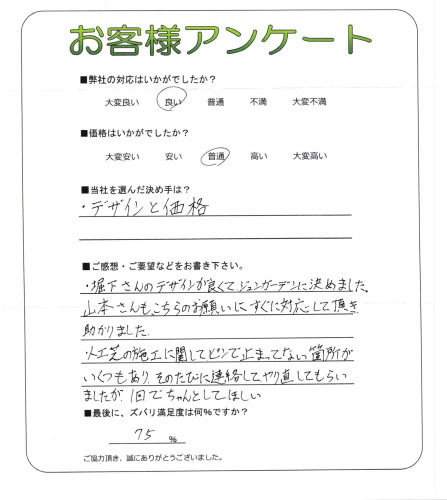 お客様アンケート
■弊社の対応はいかがでしたか?
大変良い 良い 普通 不満 大変不満
■価格はいかがでしたか?
大変安い 安い 普通 高い 大変高い
■当社を選んだ決め手は?
・デザインと価格
■ご感想・ご要望などをお書き下さい。
・堀下さんのデザインが良くてジョンガーデンに決めました。
山本さんもこちらのお願いにすぐに対応して頂き
助かりました。
人工芝の施工に関してピンで止まってない箇所が
いくつもあり、そのたびに連絡してやり直してもらい
ましたが、1回でちゃんとしてほしい
■最後に、ズバリ満足度は何%ですか?
75 %
ご協力頂き、誠にありがとうございました。